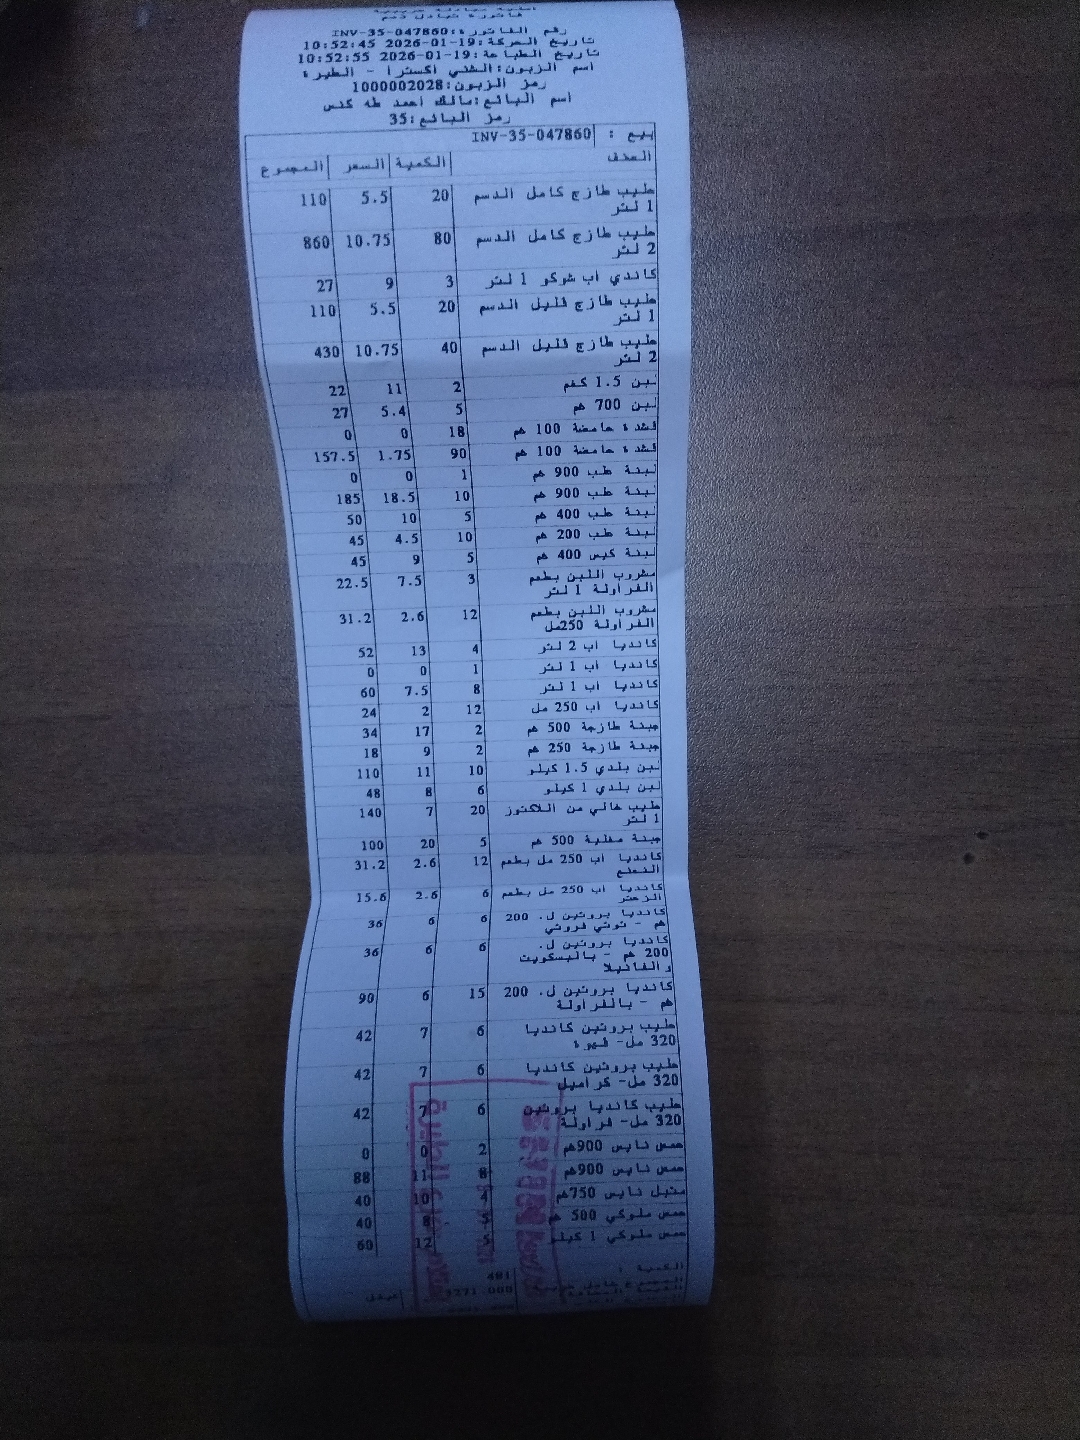 فاتورة تبادل دسم
رقم الفاتورة:INV-35-047860
تاريخ الحركة:19-01-2026 10:52:45
تاريخ الطباعة:19-01-2026 10:52:55
اسم الزبون:الشني اكسترا - الطيرة
رمز الزبون:1000002028
اسم البائع:مالك احمد طه كنس
رمز البائع:35
بيع : INV-35-047860
الصنف الكمية السعر المجموع
حليب طازج كامل الدسم 20 5.5 110
1 لتر
حليب طازج كامل الدسم 80 10.75 860
2 لتر
كاندي اب شوكو 1 لتر 3 9 27
حليب طازج قليل الدسم 20 5.5 110
1 لتر
حليب طازج قليل الدسم 40 10.75 430
2 لتر
لبن 1.5 كغم 2 11 22
لبن 700 غم 5 5.4 27
قشدة حامضة 100 غم 18 0 0
قشدة حامضة 100 غم 90 1.75 157.5
لبنة علب 900 غم 1 0 0
لبنة علب 900 غم 10 18.5 185
لبنة علب 400 غم 5 10 50
لبنة علب 200 غم 10 4.5 45
لبنة كيس 400 غم 5 9 45
مشروب اللبن بطعم 3 7.5 22.5
الفراولة 1 لتر
مشروب اللبن بطعم 12 2.6 31.2
الفراولة 250مل
كانديا اب 2 لتر 4 13 52
كانديا اب 1 لتر 1 0 0
كانديا اب 1 لتر 8 7.5 60
كانديا اب 250 مل 12 2 24
جبنة طازجة 500 غم 2 17 34
جبنة طازجة 250 غم 2 9 18
لبن بلدي 1.5 كيلو 10 11 110
لبن بلدي 1 كيلو 6 8 48
حليب خالي من اللاكتوز 20 7 140
1 لتر
جبنة مغلية 500 غم 5 20 100
كانديا اب 250 مل بطعم 12 2.6 31.2
النعنع
كانديا اب 250 مل بطعم 6 2.6 15.6
الزعتر
كانديا بروتين ل. 200 6 6 36
غم - توتي فروتي
كانديا بروتين ل. 6 6 36
200 غم - بالبسكويت
والفانيلا
كانديا بروتين ل. 200 15 6 90
غم - بالفراولة
حليب بروتين كانديا 6 7 42
320 مل- قهوة
حليب بروتين كانديا 6 7 42
320 مل- كراميل
حليب كانديا بروتين 6 7 42
320 مل- فراولة
حمص نايس 900غم 2 0 0
حمص نايس 900غم 8 11 88
متبل نايس 750غم 4 10 40
حمص ملوكي 500 غم 5 8 40
حمص ملوكي 1 كيلو 5 12 60
الكمية : 481